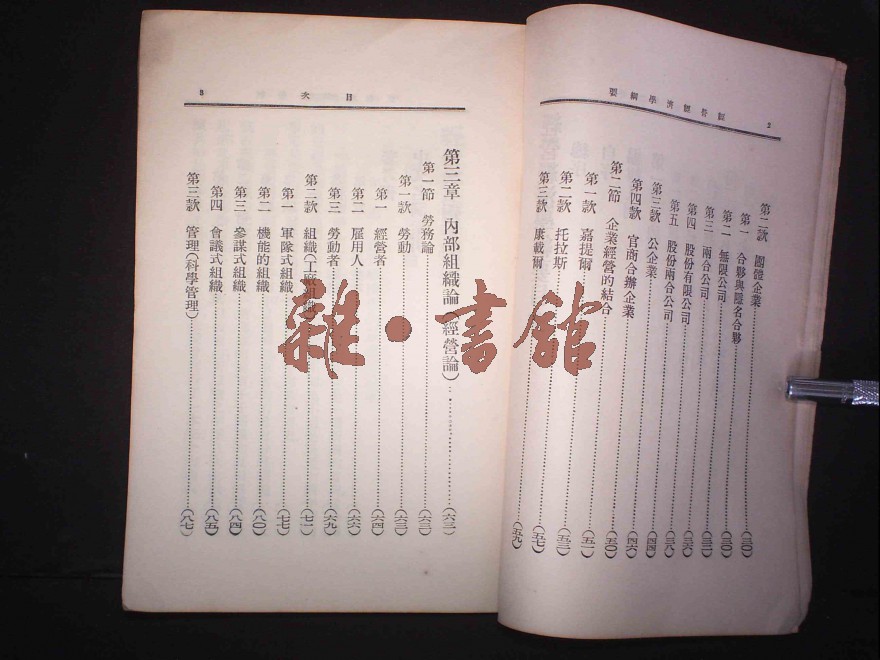 2 經營經濟學綱要
第二款 團體企業
第一 合夥與隱名合夥……(三〇)
第二 無限公司……(三〇)
第三 兩合公司……(三二)
第四 股份有限公司……(三六)
第五 股份兩合公司……(三八)
第三款 公企業……(四四)
第四款 官商合辦企業……(四六)
第二節 企業經營的結合……(五〇)
第一款 嘉提爾……(五一)
第二款 托拉斯……(五三)
第三款 康載爾……(五七)
……(五九)
目次 3
第三章 內部組織論(經營論)……(六三)
第一節 勞務論……(六三)
第一款 勞動……(六三)
第一 經營者……(六四)
第二 雇用人……(六六)
第三 勞動者……(六九)
第二款 組織(工廠組織)……(七一)
第一 軍隊式組織……(七七)
第二 機能的組織……(八〇)
第三 參謀式組織……(八四)
第四 會議式組織……(八五)
第三款 管理(科學管理)……(八七)
雜·書館